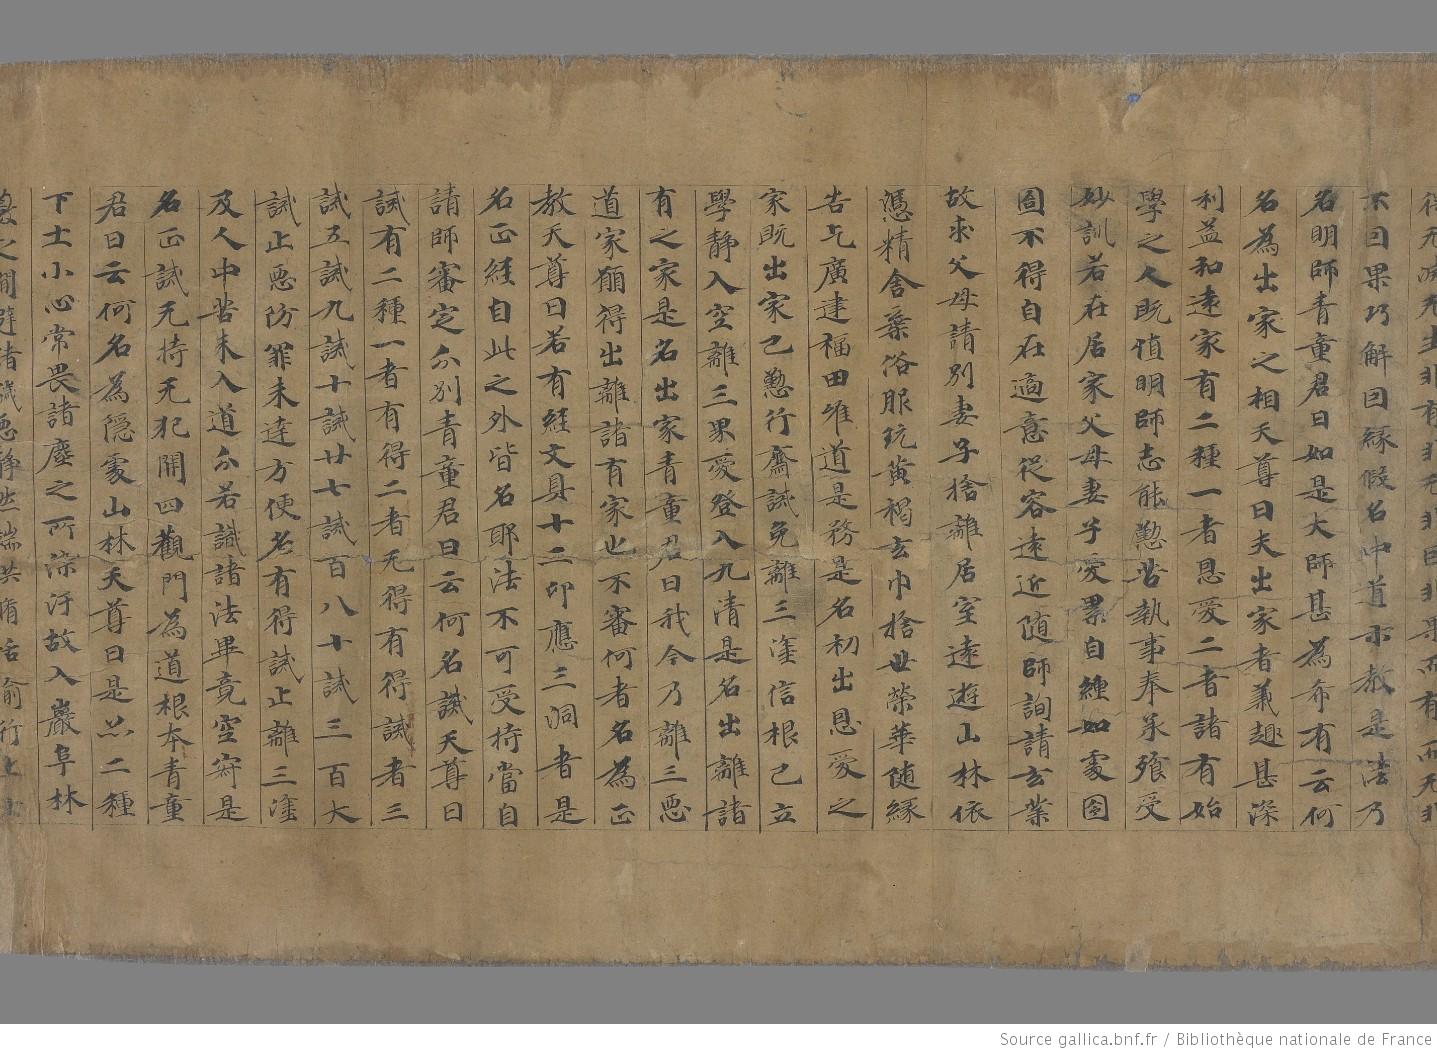 不因果巧解因緣假名中道示教是法乃
名明師青童君曰如是大師甚為希有云何
名為出家之相天尊曰夫出家者義趣甚深
利益和遠家有二種一者恩愛二者諸有始
學之人既值明師志能懃苦執事奉承飡受
妙訓若在居家父母妻子愛累自纏如處囹
固不得自在適意從容遠近随師詢請玄業
故求父母請別妻子捨離居室遠遊山林依
憑精舍棄俗服玩黃褐玄巾捨世榮華随緣
告乞廣建福田唯道是務是名初出恩愛之
家既出家已懃行齋誡免離三塗信根已立
學静入空離三界愛登入九清是名出離諸
有之家是名出家青童君曰我今乃離三惡
道家願得出離諸有家也不審何者名為正
教天尊曰若有經文具十二印應三洞者是
名正經自此之外皆名耶法不可受持當自
請師審定分別青童君曰云何名誡天尊曰
誡有二種一者有得二者无得有得誡者三
誡五誡九誡十誡廿七誡百八十誡三百大
誡止惡防罪未達方便名有得誡止離三塗
及人中苦未入道分若識諸法畢竟空寂是
名正誡无持无犯開四觀門為道根本青童
君曰云何名為隱處山林天尊曰是亦二種
下士小心常畏諸塵之所染汙故入巖阜林
Source gallica.bnf.fr / Bibliothèque nationale de France